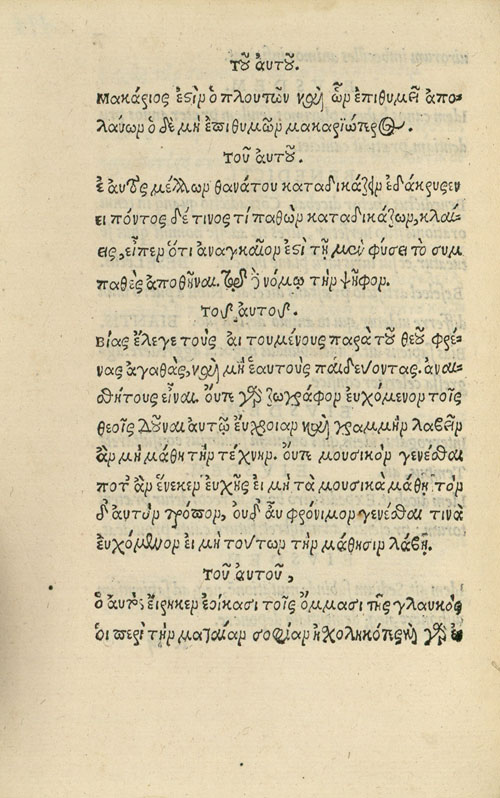 Τοῦ ἀυτοῦ.
Μακάριος ἐστὶν ὁ πλουτῶν καὶ ὧν ἐπιθυμεῖ ἀπο-
λαύων ὁ δὲ μὴ ἐπιθυμῶν μακαριώτερος.
Τοῦ ἀυτοῦ.
Ἐ αυτὸς μέλλων θανάτου καταδικάζειν ἐδάκρυσεν
ειπόντος δέ τινος τί παθὼν καταδικάζων, κλαί-
εις, εἶπεν ὅτι ἀναγκαῖον ἐστὶ τῇ μὲν φύσει τὸ συμ
παθὲς ἀποδοῦναι. τῷ δὲ νόμῳ τὴν ψῆφον.
Τοῦ αυτοῦ.
Βίας ἔλεγε τοὺς αἰτουμένους παρὰ τοῦ θεοῦ φρέ-
νας ἀγαθὰς, καὶ μὴ ἑαυτοὺς παιδεύοντας. ἀναι-
σθήτους εἶναι. οὔτε γὰρ ζωγράφον ευχόμενον τοῖς
θεοῖς δοῦναι αυτῷ ἔυχροιαν καὶ γραμμὴν λαβεῖν
ἂν μὴ μάθῃ τὴν τέχνην. οὔτε μουσικὸν γενέσθαι
ποτ' ἂν ἕνεκεν ἐυχῆς ἐι μὴ τὰ μουσικὰ μάθῃ τὸν
δ' ἀυτὸν τρόπον, οὐδ' ἂν φρόνιμον γενέσθαι τινὰ
ἐυχόμενον ἐι μὴ τούτων τὴν μάθησιν λάβῃ.
Τοῦ ἀυτοῦ,
ὁ ἀυτὸς ἔιρηκεν ἐοίκασι τοῖς ὄμμασι τῆς γλαυκὸς
ὁι περὶ τὴν ματαίαν σοφίαν ἠσχοληκότες καὶ γὰρ ἐ